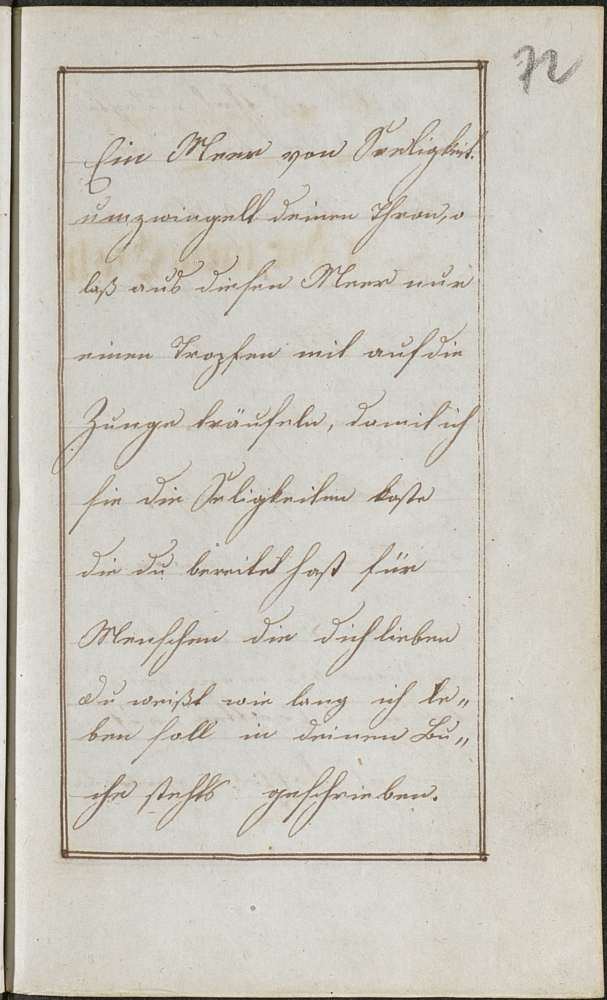 72
Ein Meer von Seeligkeit.
umzwingelt deinen Thron, o
laß aus diesen Meer nur
einen Tropfen mit auf die
Zunge träufeln, damit ich
sie die Seligkeiten koste
die du bereitet hast für
Menschen die dich lieben
du weißt wie lang ich le„
ben soll in deinem Bu„
che stehts geschrieben.